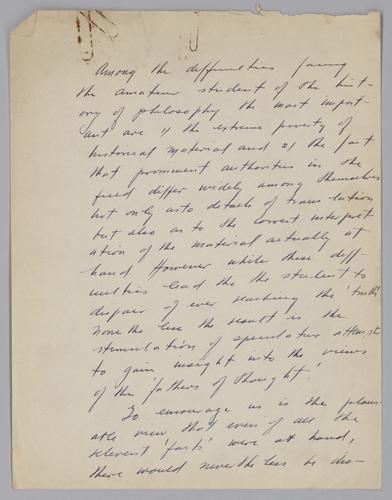 Among the difficulties facing
the amateur student of the hist-
ory of philosophy the most import-
ant are 1) the extreme poverty of
historical material and 2) the fact
that prominent authorities in the
field differ widely among themselves
not only as to details of translation
but also as to the correct interpret
ation of the material actually at
hand. However while these diff-
iculties lead the the student to
despair of ever reaching the 'truth'
none the less the result is the
stimulation of speculative attempts
to gain insight into the views
of the 'fathers of thought'.
To encourage us is the plaus-
able view, that even if all the
relevent 'facts' were at hand,
there would never the less be dis-